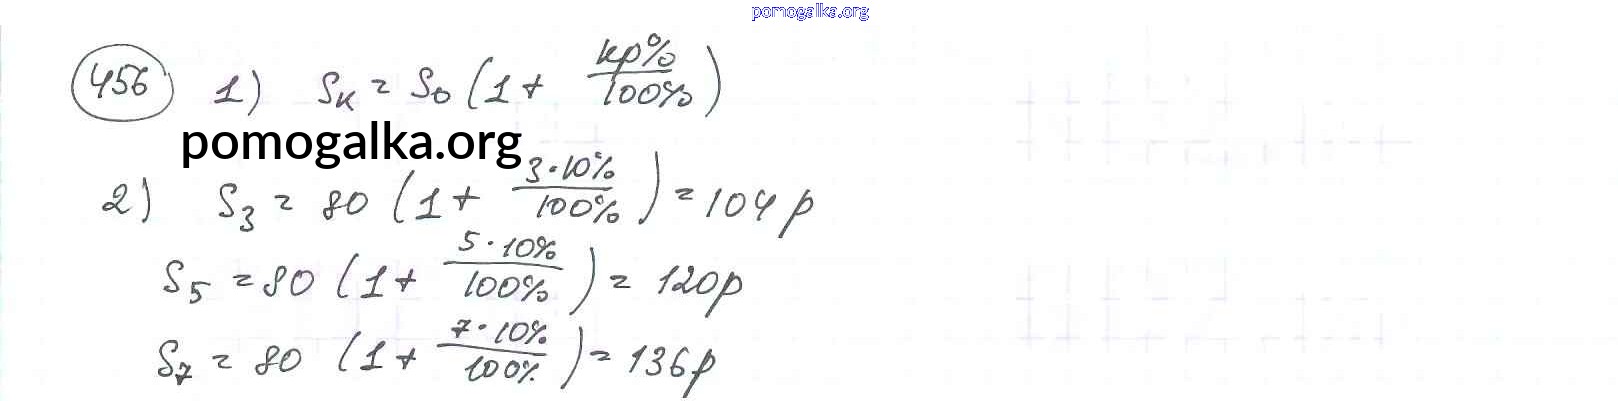 pomogalka.org
456 1) Sк = S₀ (1 + кр%/100%)
pomogalka.org
2) S₃ = 80 (1 + 3·10%/100%) = 104 р
S₅ = 80 (1 + 5·10%/100%) = 120р
S₇ = 80 (1 + 7·10%/100%) = 136р